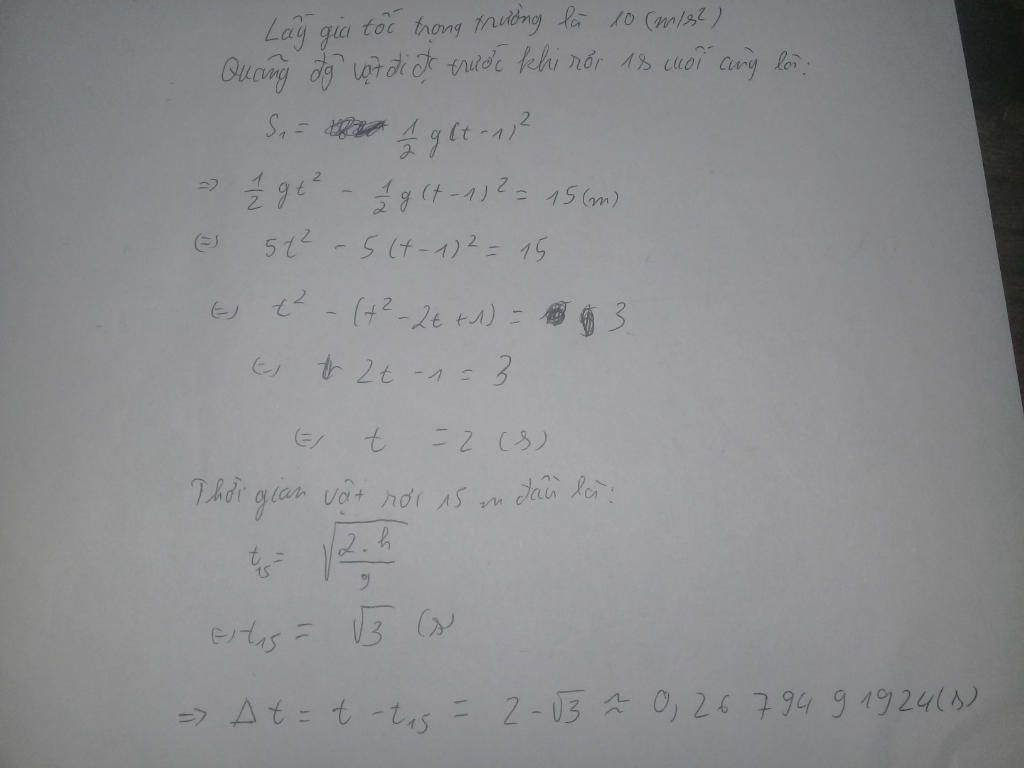 Lấy gia tốc trọng trường là 10 (m/s²)
Quãng đg vật đi đc trước khi rơi 1s cuối cùng là:
S₁ = 1/2 g(t-1)²
=> 1/2 gt² - 1/2 g(t-1)² = 15(m)
(=) 5t² - 5(t-1)² = 15
(=) t² - (t² - 2t + 1) = 3
(=) 2t - 1 = 3
(=) t = 2 (s)
Thời gian vật rơi 15 m đầu là:
t₁₅ = √(2.h/g)
(=) t₁₅ = √3 (s)
=> Δt = t - t₁₅ = 2 - √3 ≈ 0,2679491924(s)